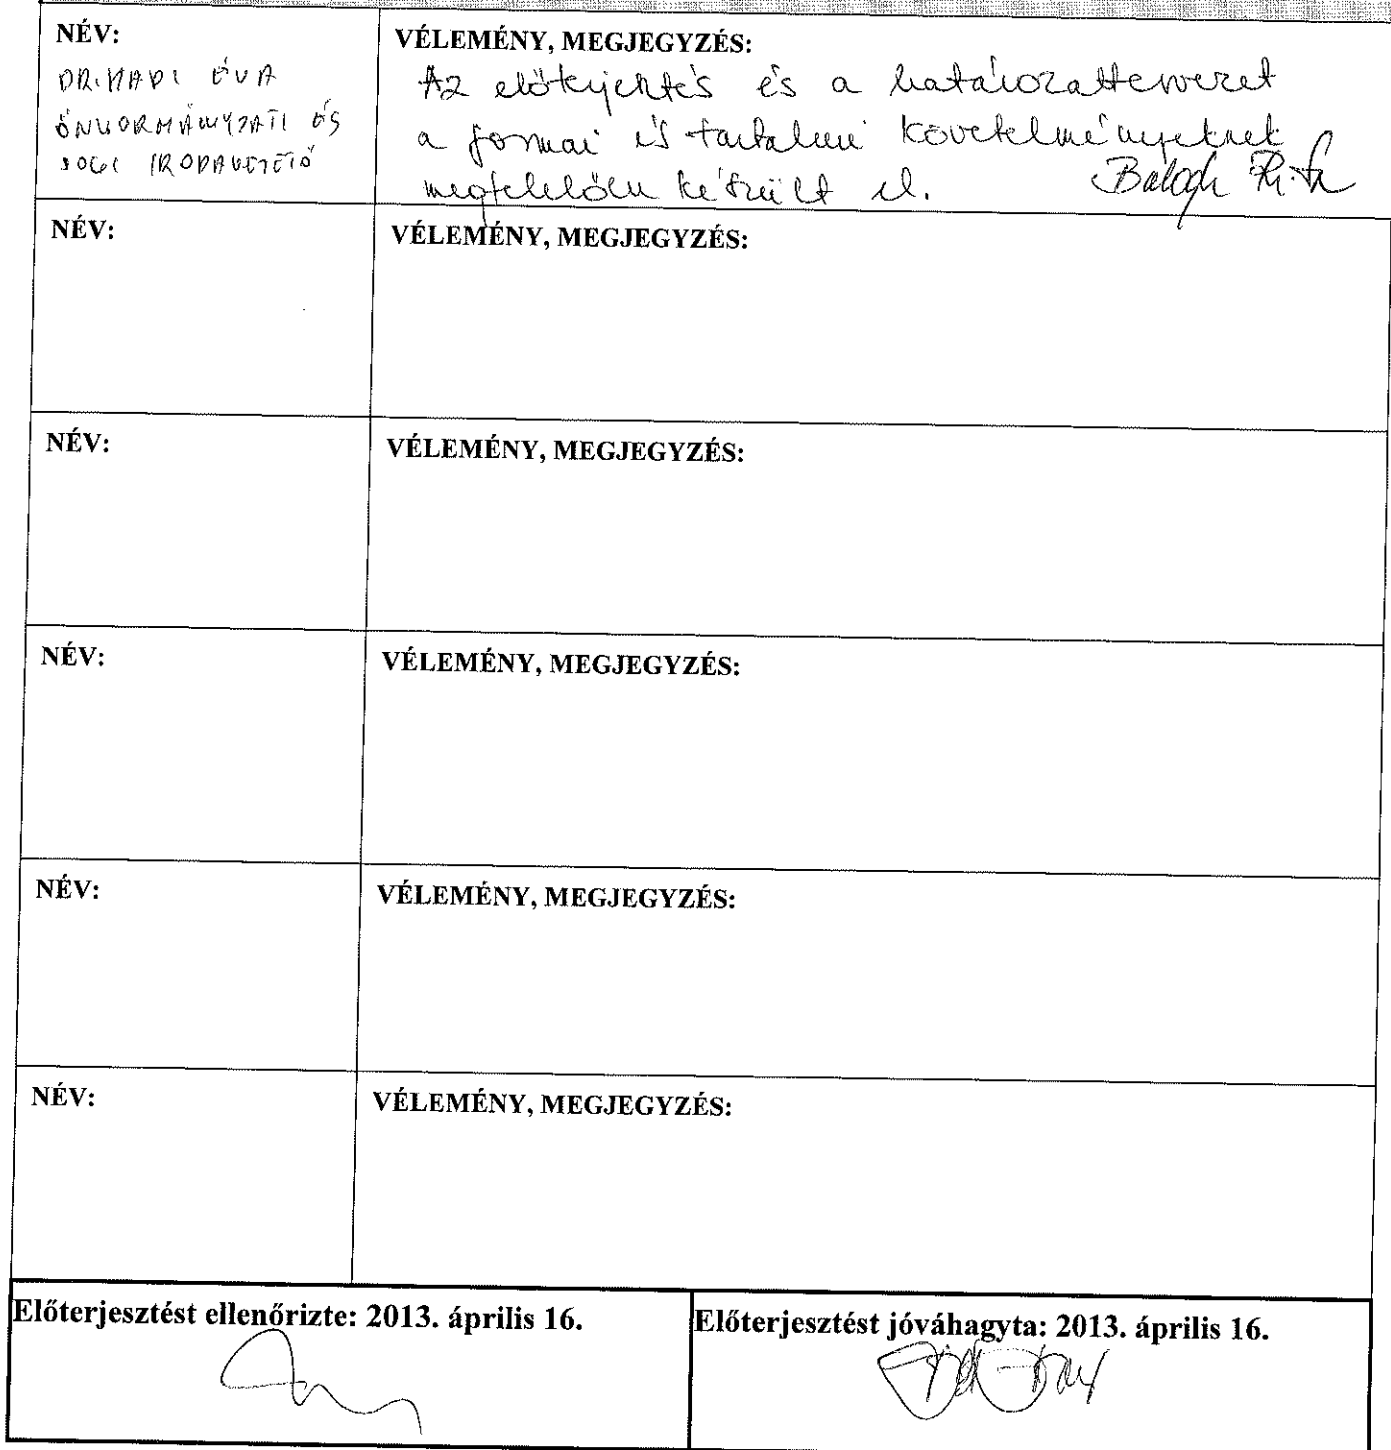 NÉV:
DR. HADI ÉVA
ÖNKORMÁNYZATI ÉS
JOGI IRODAVEZETŐ
VÉLEMÉNY, MEGJEGYZÉS:
Az előterjesztés és a határozattervezet
a formai és tartalmi követelményeknek
megfelelően készült el. Balogh Rita
NÉV:
VÉLEMÉNY, MEGJEGYZÉS:
NÉV:
VÉLEMÉNY, MEGJEGYZÉS:
NÉV:
VÉLEMÉNY, MEGJEGYZÉS:
NÉV:
VÉLEMÉNY, MEGJEGYZÉS:
NÉV:
VÉLEMÉNY, MEGJEGYZÉS:
Előterjesztést ellenőrizte: 2013. április 16.
Előterjesztést jóváhagyta: 2013. április 16.